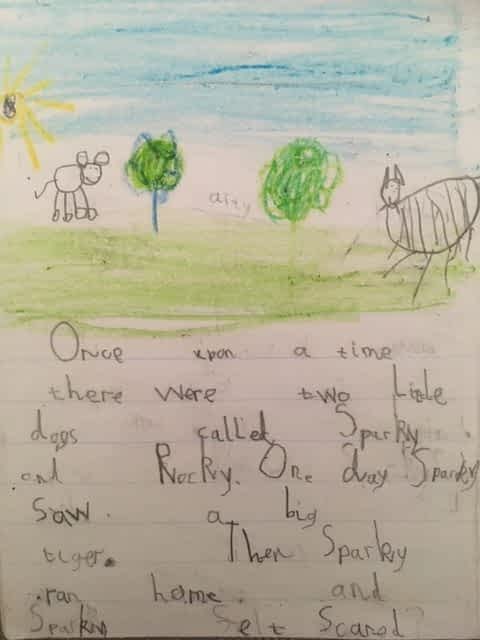 Once upon a time
there were two little
dogs called Sparky
and Rocky. One day Sparky
saw a big
tiger. Then Sparky
ran home. and
Sparky felt scared